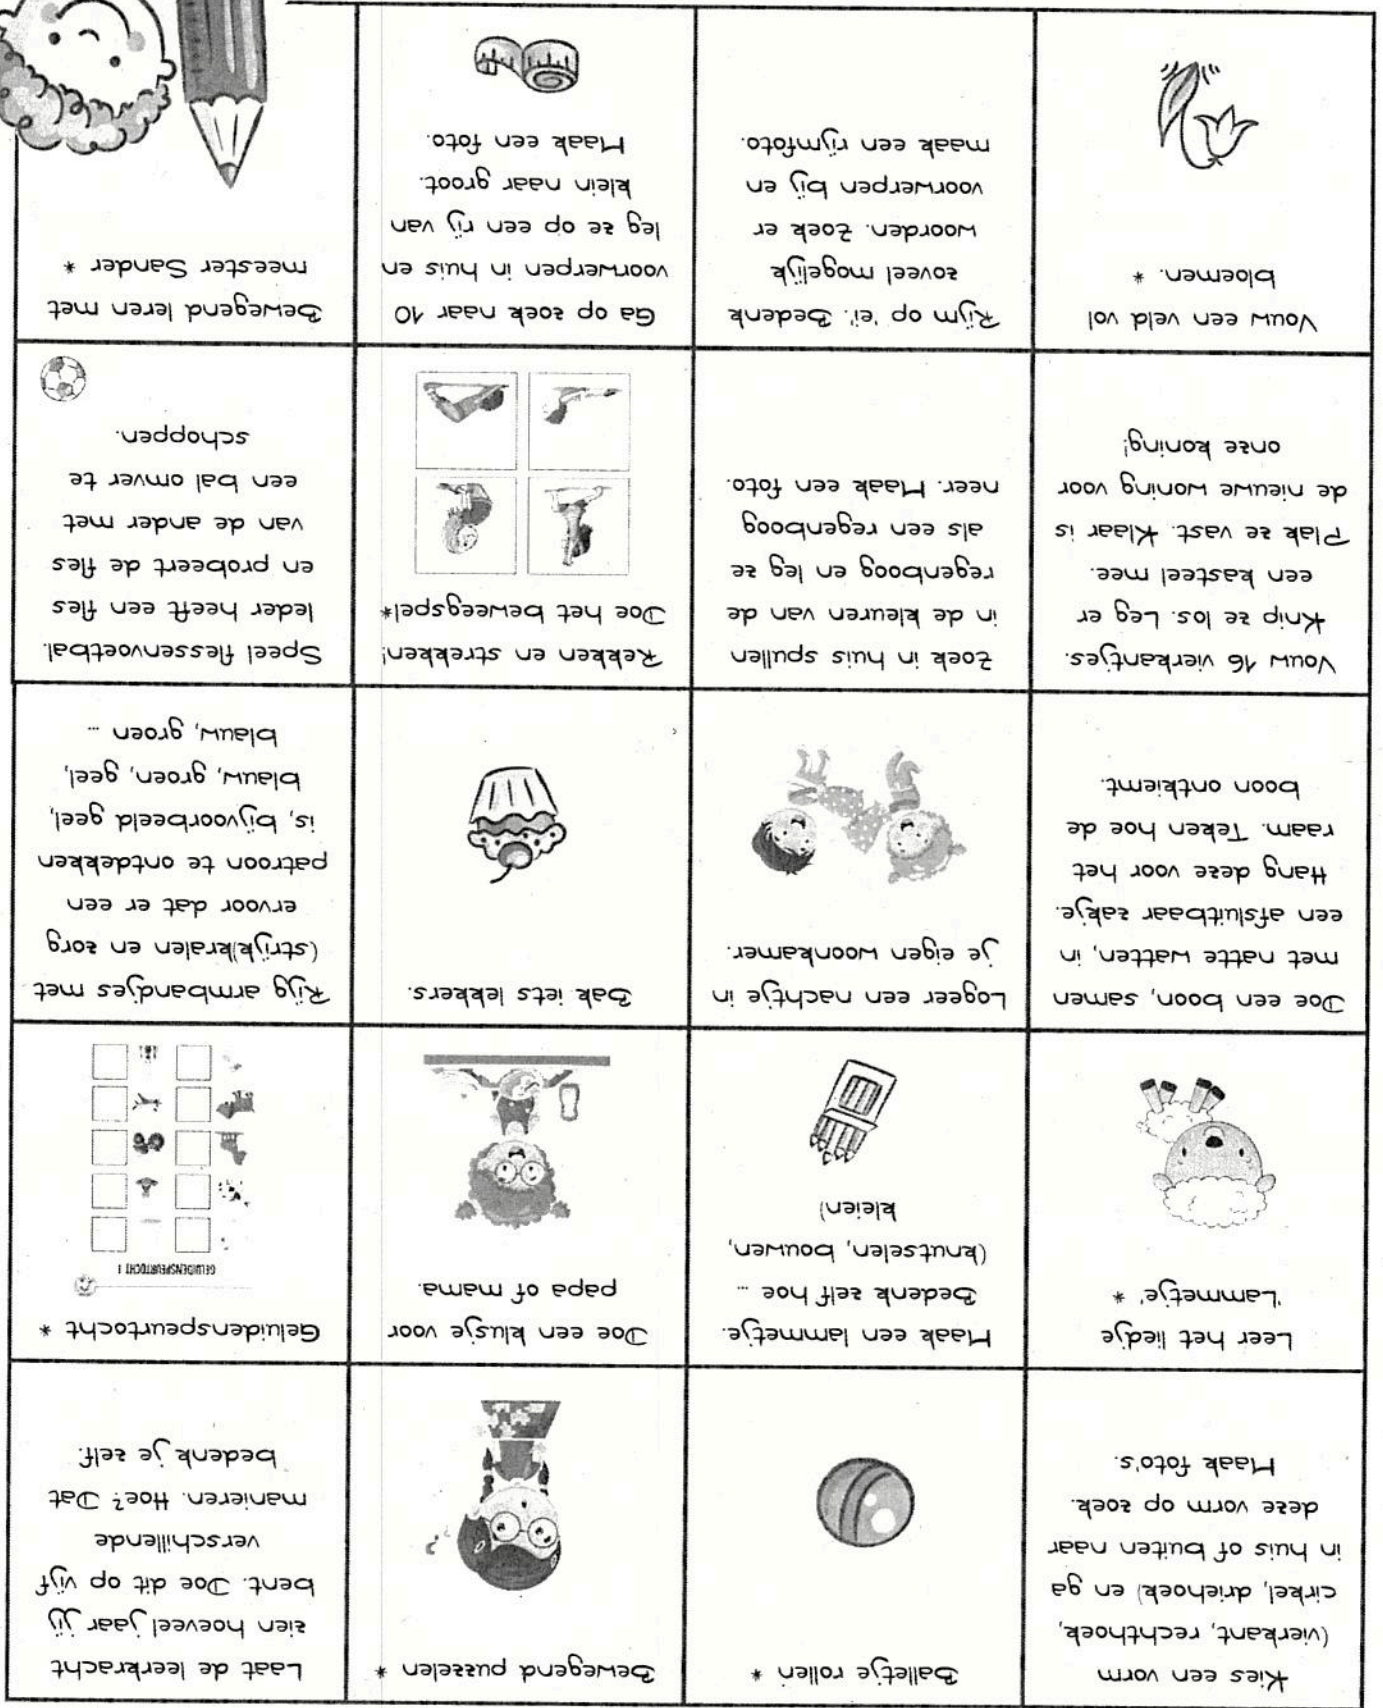 Kies een vorm
(vierkant, rechthoek,
cirkel, driehoek) en ga
in huis of buiten naar
deze vorm op zoek.
Maak foto's.
Balletje rollen *
Bewegend puzzelen *
Laat de leerkracht
zien hoeveel jaar jij
bent. Doe dit op vijf
verschillende
manieren. Hoe? Dat
bedenk je zelf.
Leer het liedje
'Lammetje' *
Maak een lammetje.
Bedenk zelf hoe ...
(knutselen, bouwen,
kleien)
Doe een klusje voor
papa of mama.
Geluidenspeurtocht *
GELUIDENSPEURTOCHT 1
Doe een boon, samen
met natte watten, in
een afsluitbaar zakje.
Hang deze voor het
raam. Teken hoe de
boon ontkiemt.
Logeer een nachtje in
je eigen woonkamer.
Bak iets lekkers.
Rijg armbandjes met
(strijk)kralen en zorg
ervoor dat er een
patroon te ontdekken
is, bijvoorbeeld geel,
blauw, groen, geel,
blauw, groen ...
Vouw 16 vierkantjes.
Knip ze los. Leg er
een kasteel mee.
Plak ze vast. Klaar is
de nieuwe woning voor
onze koning!
Zoek in huis spullen
in de kleuren van de
regenboog en leg ze
als een regenboog
neer. Maak een foto.
Rekken en strekken!
Doe het beweegspel*
Speel flessenvoetbal.
Ieder heeft een fles
en probeert de fles
van de ander met
een bal omver te
schoppen.
Vouw een veld vol
bloemen. *
Rijm op 'ei'. Bedenk
zoveel mogelijk
woorden. Zoek er
voorwerpen bij en
maak een rijmfoto.
Ga op zoek naar 10
voorwerpen in huis en
leg ze op een rij van
klein naar groot.
Maak een foto.
Bewegend leren met
meester Sander *